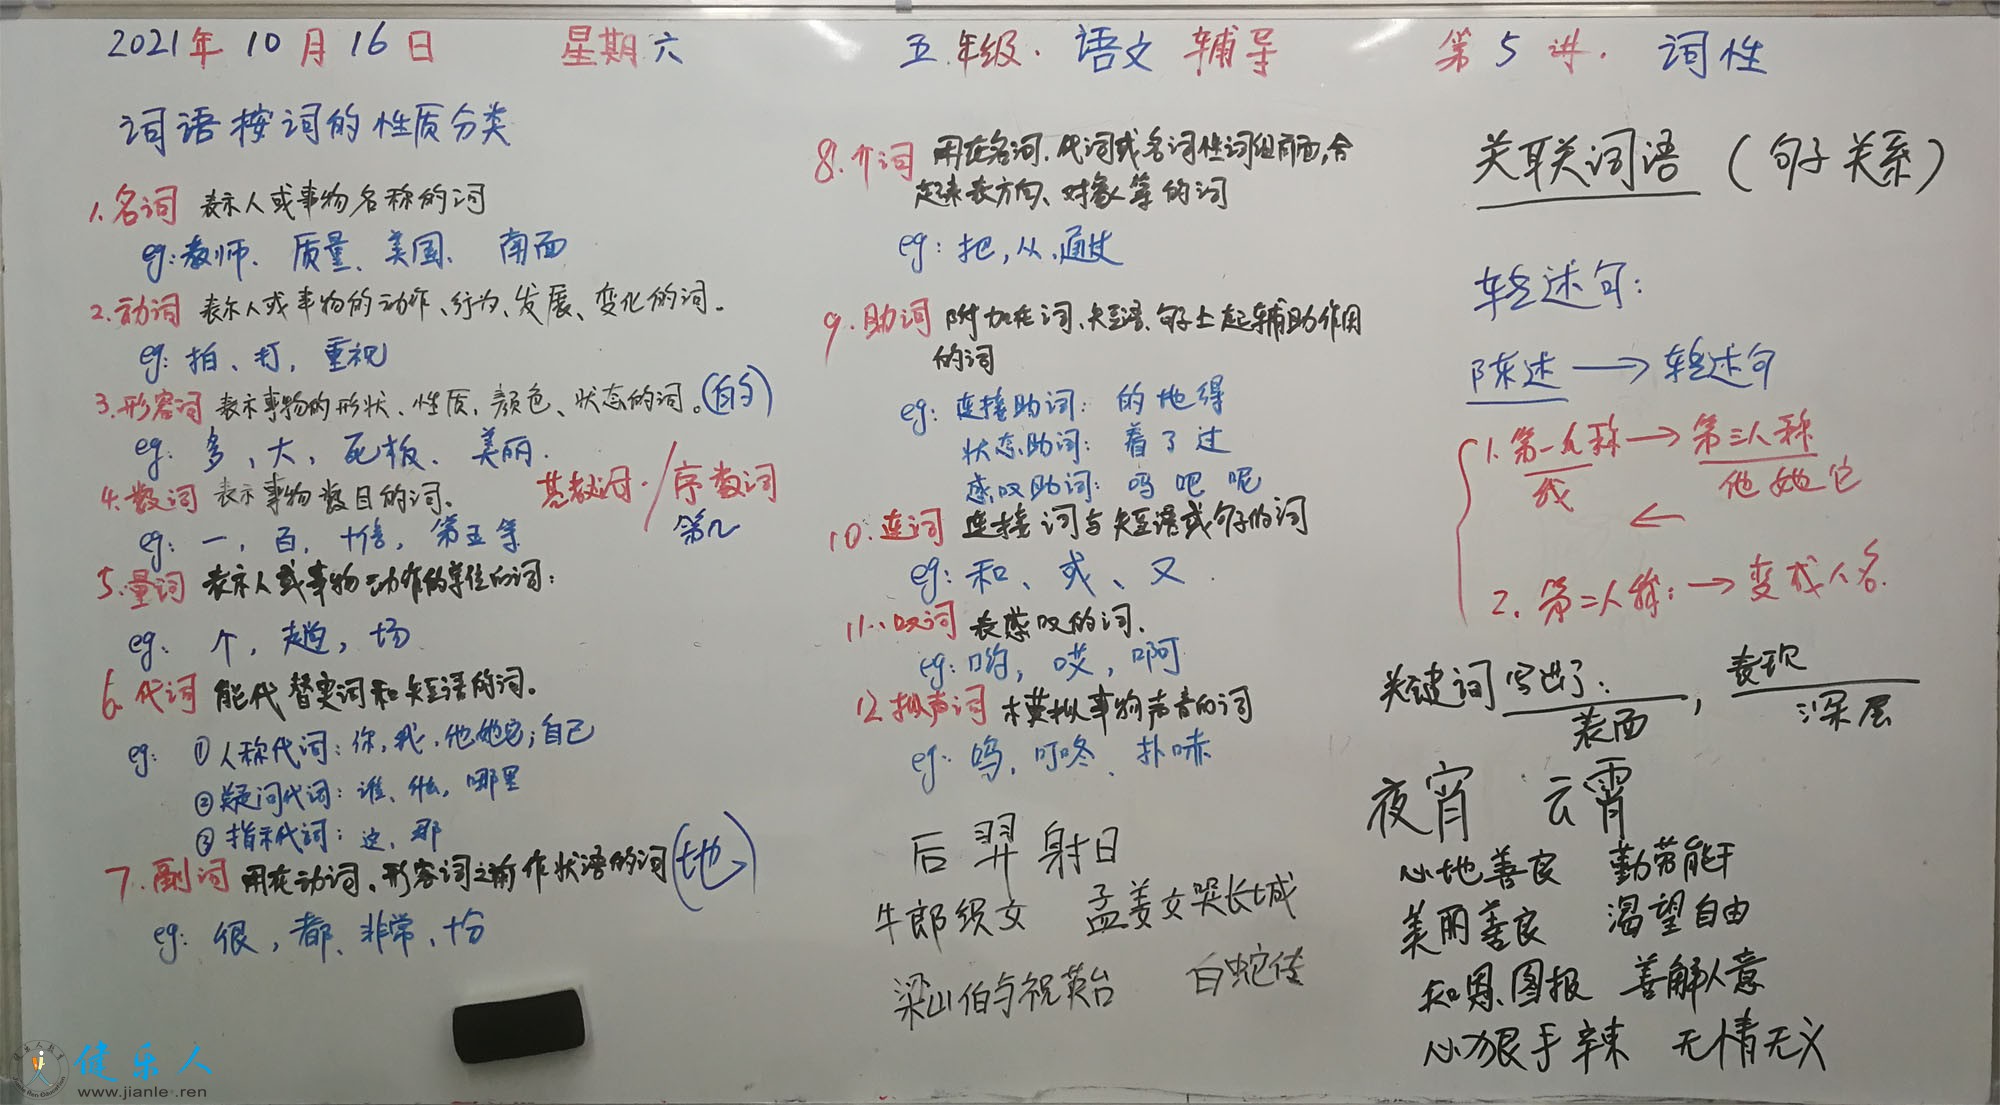 2021年10月16日 星期六 五年级·语文 辅导 第5讲·词性
词语按词的性质分类
1.名词 表示人或事物名称的词
eg:教师、质量、美国、南面
2.动词 表示人或事物的动作、行为、发展、变化的词。
eg:拍、打,重视
3.形容词 表示事物的形状、性质,颜色、状态的词。(的)
eg:多,大,死板、美丽.
4.数词 表示事物数目的词。 基数词·/序数词
第几
eg:一,百,十倍,第五等
5.量词 表示人或事物动作的单位的词:
eg:个,趟,场
6.代词 能代替实词和短语的词。
eg:①人称代词:你,我,他她它;自己
②疑问代词:谁、什么,哪里
③指示代词:这、那
7.副词 用在动词。形容词之前作状语的词(地)
eg:很,都、非常、十分
8.介词 用在名词、代词或名词性词组前面,合
起来表方向、对象等的词
eg:把,从、通过
9.助词 附加在词、短语、句子上起辅助作用
的词
eg:连接助词:的 地 得
状态助词:着 了 过
感叹助词:吗 吧 呢
10.连词 连接词与短语或句子的词
eg:和、或、又
11.叹词 表感叹的词.
eg:哟,哎,啊
12.拟声词 模拟事物声音的词
eg:呜,叮咚、扑哧
后羿射日
牛郎织女 孟姜女哭长城
梁山伯与祝英台 白蛇传
关联词语(句子关系)
转述句:
陈述→转述句
1.第一人称→第三人称
我 他她它
←
2.第二人称:→变成人名.
关键词写出了: , 表现
表面 深层
夜宵 云霄
心地善良 勤劳能干
美丽善良 渴望自由
知恩图报 善解人意
心狠手辣 无情无义
健乐人
www.jianle.ren